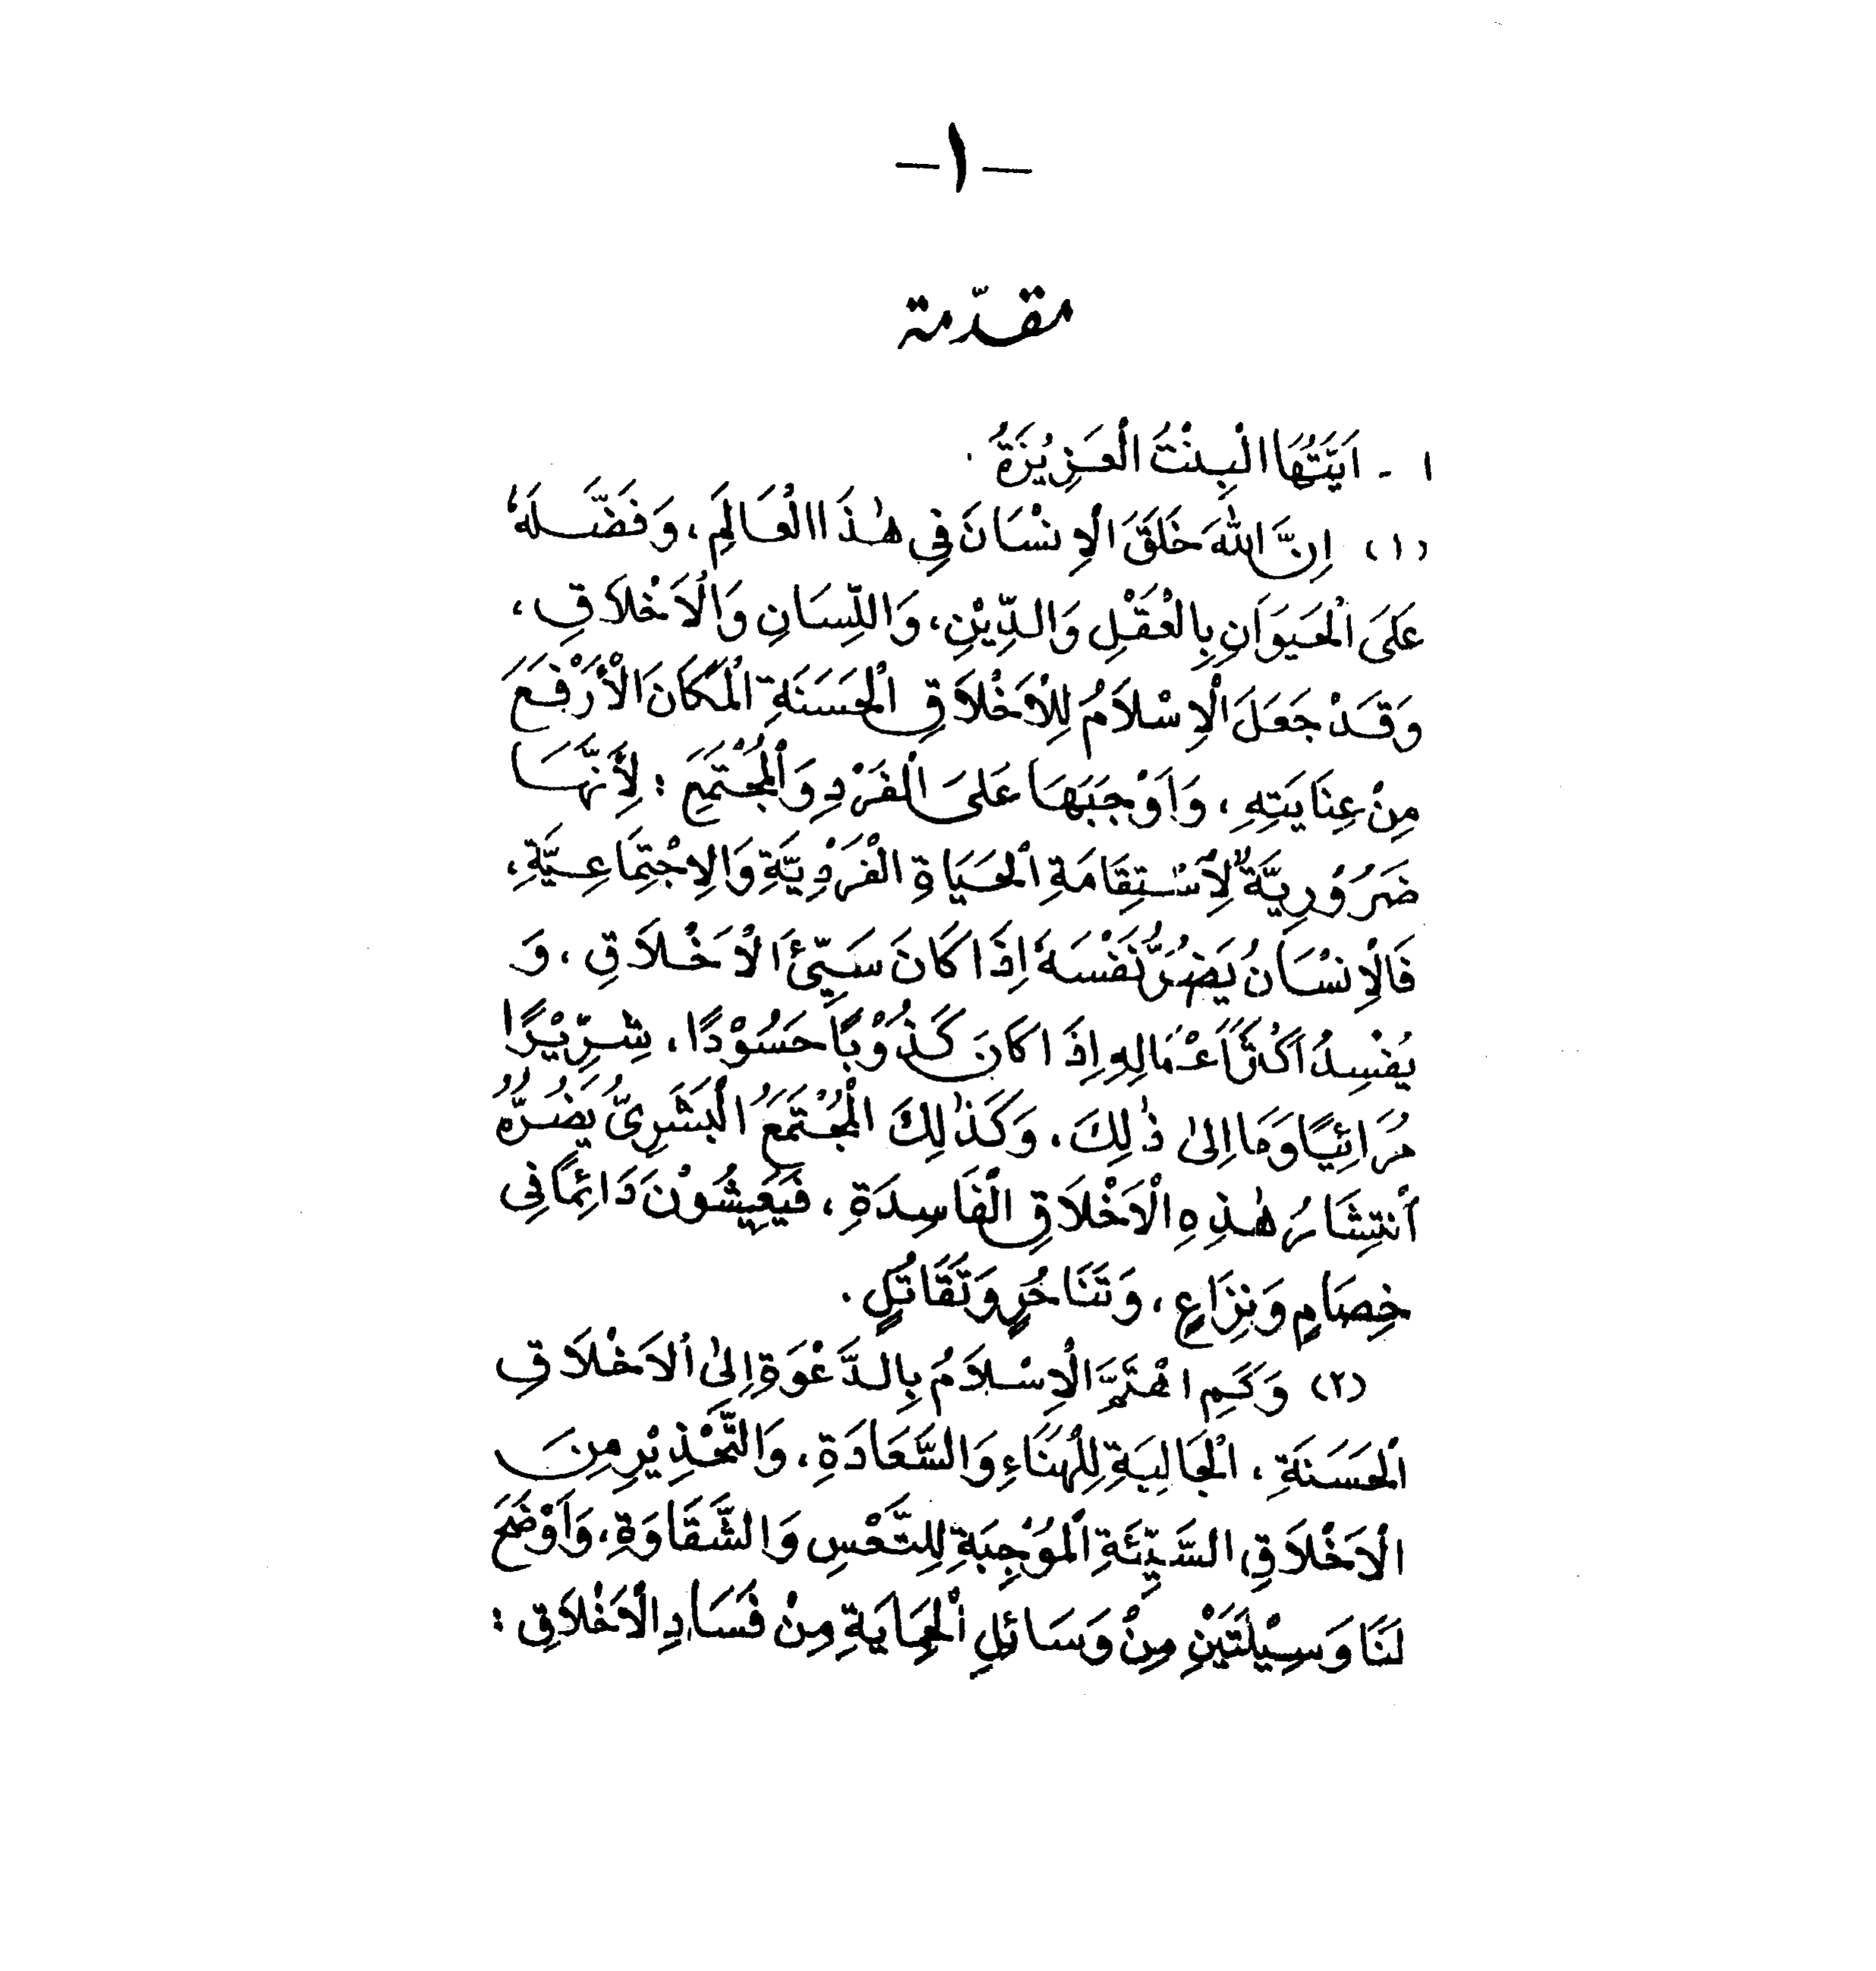 −١−
مقدّمة
١ - اَيَّتُهَا الْبِنْتُ الْعَزِيْزَةُ .
(١) اِنَّ اللهَ خَلَقَ الْاِنْسَانَ فِي هٰذَا الْعَالَمِ، وَفَضَّلَهُ
عَلَى الْحَيَوَانِ بِالْعَقْلِ وَالدِّيْنِ، وَاللِّسَانِ وَالْاَخْلَاقِ،
وَقَدْ جَعَلَ الْاِسْلَامُ لِلْأَخْلَاقِ الْحَسَنَةِ الْمَكَانَ الْأَرْفَعَ
مِنْ عِنَايَتِهِ، وَاَوْجَبَهَا عَلَى الْفَرْدِ وَالْمُجْتَمَعِ : لِأَنَّهَا
ضَرُوْرِيَّةٌ لِاسْتِقَامَةِ الْحَيَاةِ الْفَرْدِيَّةِ وَالِاجْتِمَاعِيَّةِ،
فَالْاِنْسَانُ يَضُرُّ نَفْسَهُ اِذَا كَانَ سَيِّئَ الْاَخْلَاقِ، وَ
يُفْسِدُ اَكْثَرَ أَعْمَالِهِ اِذَا كَانَ كَذُوْبًا حَسُوْدًا، شِرِّيْرًا
مُرَائِيًا وَمَا اِلَى ذٰلِكَ، وَكَذٰلِكَ الْمُجْتَمَعُ الْبَشَرِيُّ يَضُرُّهُ
اُنْتِشَارُ هٰذِهِ الْاَخْلَاقِ الْفَاسِدَةِ، فَيَعِيْشُوْنَ دَائِمًا فِي
خِصَامٍ وَنِزَاعٍ، وَتَنَاحُرٍ وَتَقَاتُلٍ.
(٢) وَكَمِ اهْتَمَّ الْاِسْلَامُ بِالدَّعْوَةِ اِلَى الْاَخْلَاقِ
الْحَسَنَةِ، الْجَالِبَةِ لِلْهَنَاءِ وَالسَّعَادَةِ، وَالتَّحْذِيْرِ مِنَ
الْاَخْلَاقِ السَّيِّئَةِ الْمُوْجِبَةِ لِلتَّعْسِ وَالشَّقَاوَةِ، وَاَوْضَحَ
لَنَا وَسِيْلَتَيْنِ مِنْ وَسَائِلِ الْحِمَايَةِ مِنْ فَسَادِ الْاَخْلَاقِ :